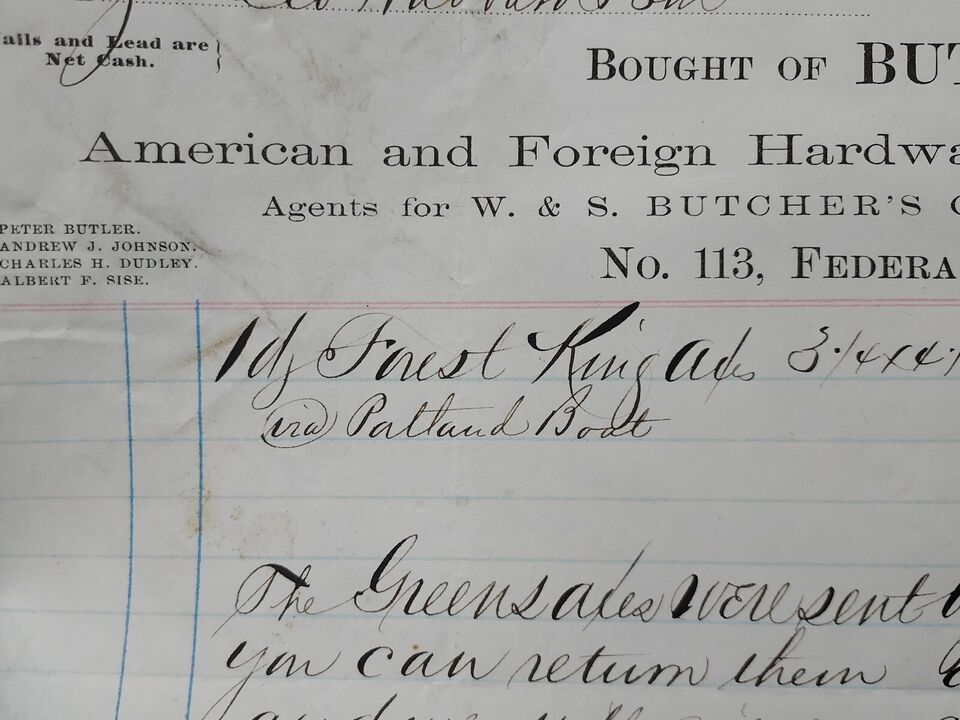 ails and Lead are
Net Cash.
BOUGHT OF BUT
American and Foreign Hardwa
Agents for W. & S. BUTCHER'S C
PETER BUTLER.
ANDREW J. JOHNSON.
CHARLES H. DUDLEY.
ALBERT F. SISE.
No. 113, FEDERA
1 dz Forest King Axes 3 1/4 x 4
via Portland Boat
The Greens axes were sent
you can return them